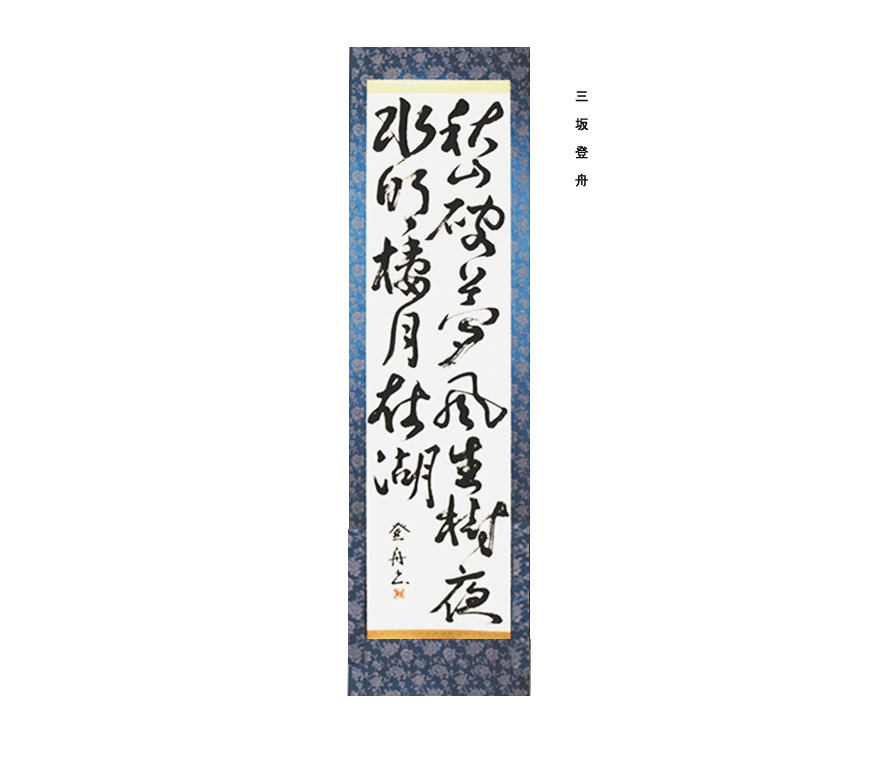 三坂登舟
秋山破夢風生樹夜
水明楼月在湖
登舟